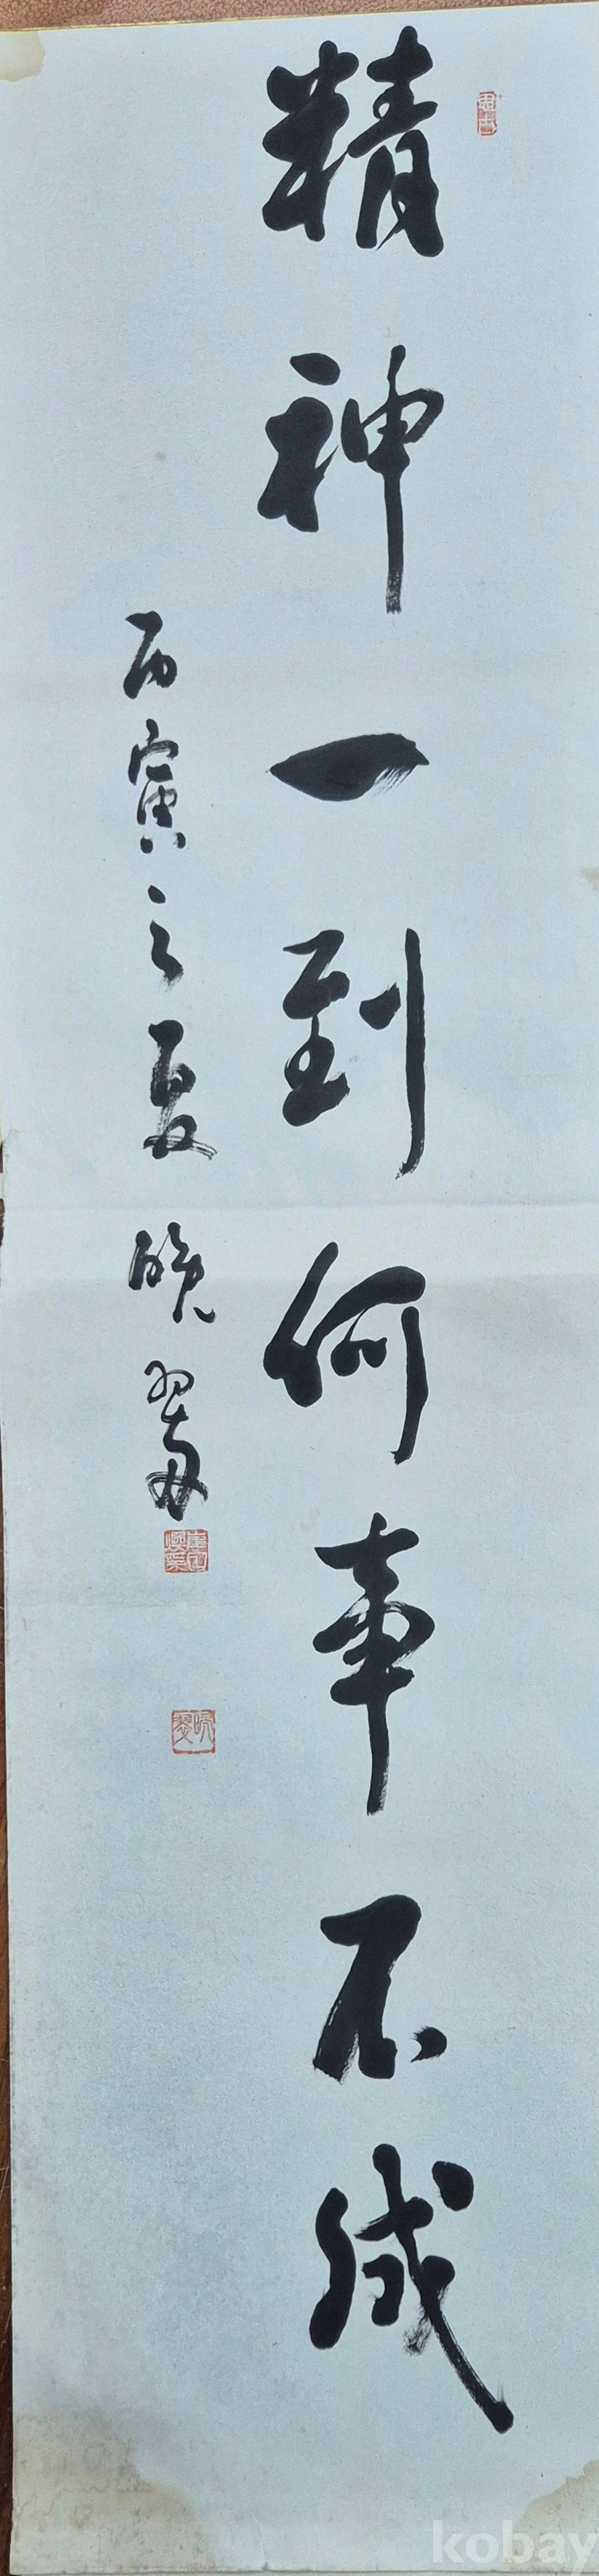 精神一到何事不成
丙寅之夏 晩翠
kobay